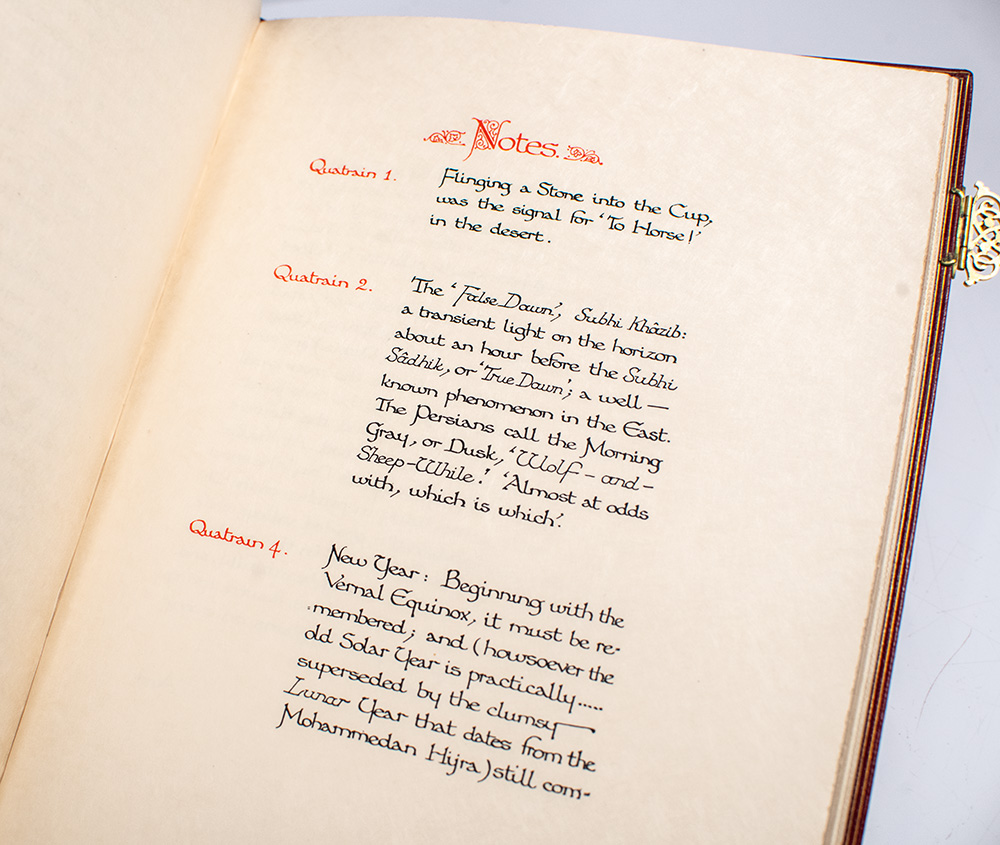 Notes.
Quatrain 1.
Flinging a Stone into the Cup,
was the signal for 'To Horse!'
in the desert.
Quatrain 2.
'The 'False Dawn'; Subhi Khâzib:
a transient light on the horizon
about an hour before the Subhi
Sâdhik, or 'True Dawn'; a well —
known phenomenon in the East.
The Persians call the Morning
Gray, or Dusk, 'Wolf-and-
Sheep-While!' 'Almost at odds
with, which is which'.
Quatrain 4.
New Year: Beginning with the
Vernal Equinox, it must be re-
membered; and (howsoever the
old Solar Year is practically.....
superseded by the clumsy
Lunar Year that dates from the
Mohammedan Hijra) still com-